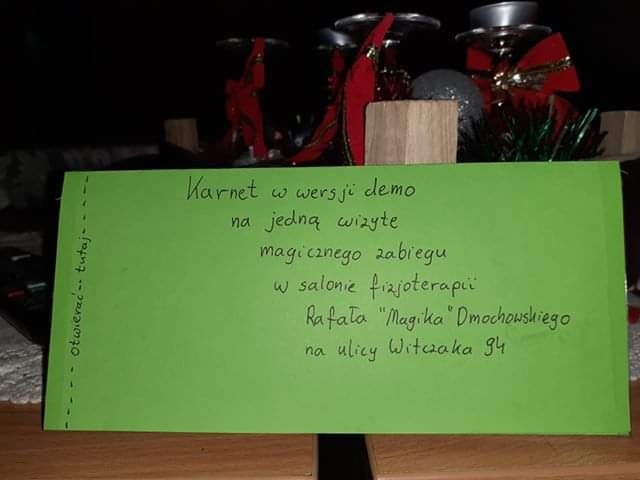 Karnet w wersji demo
na jedną wizytę
magicznego zabiegu
w salonie fizjoterapii
Rafała "Magika" Dmochowskiego
na ulicy Witczaka 94
otwierać -- tutaj